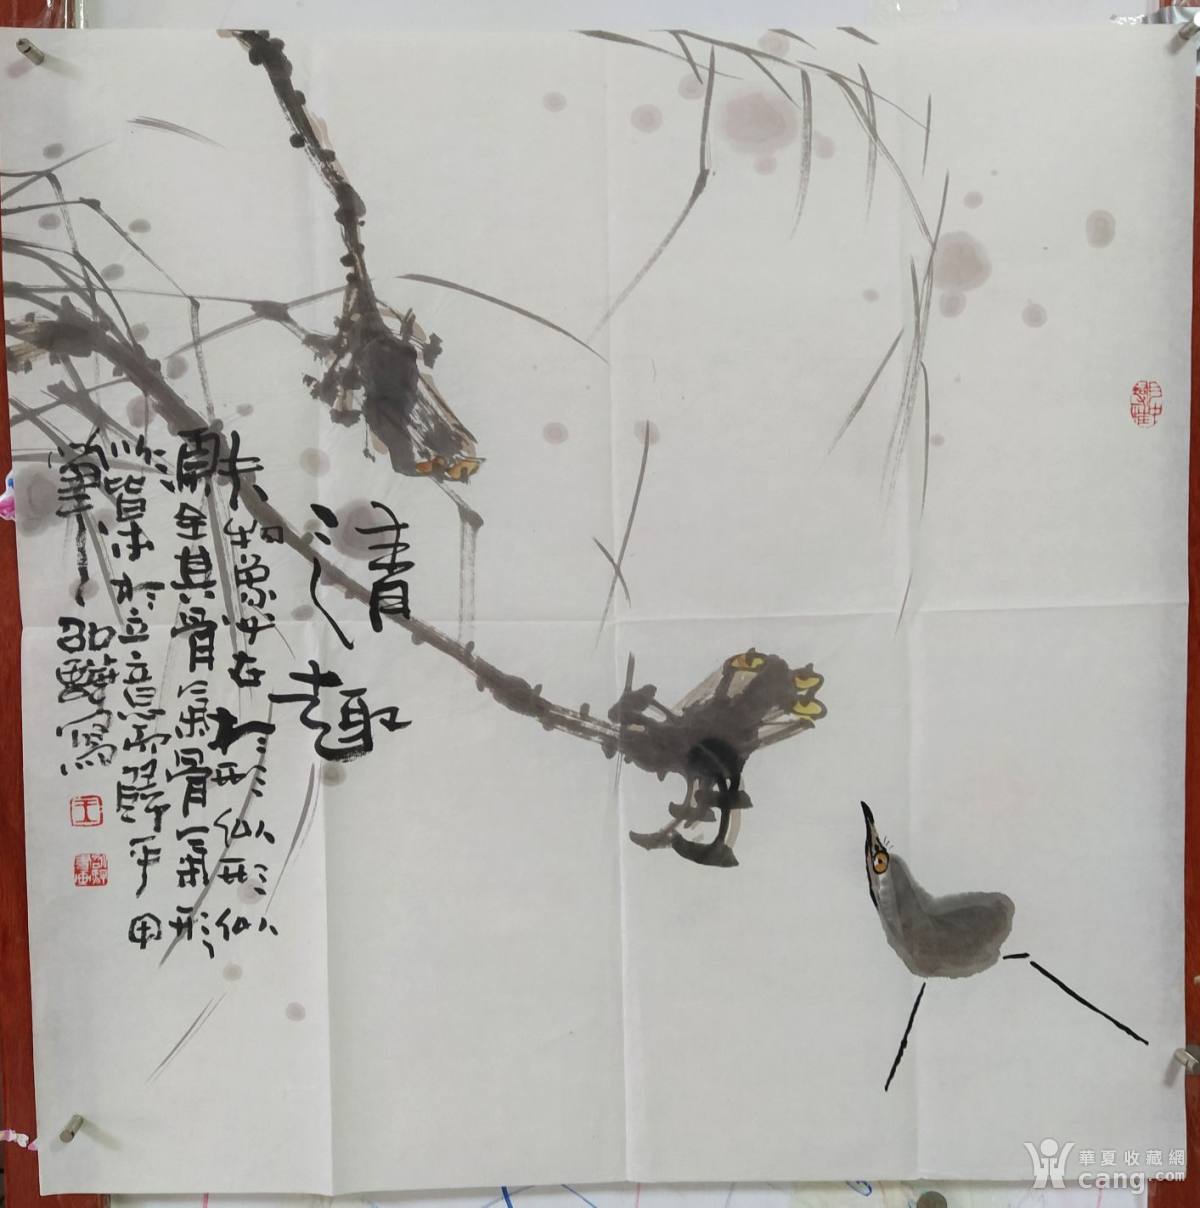 清趣
夫物象必在於形似形似
須全其骨氣骨氣形
似皆本於立意而歸乎用
筆
寫
華夏收藏網
cang.com